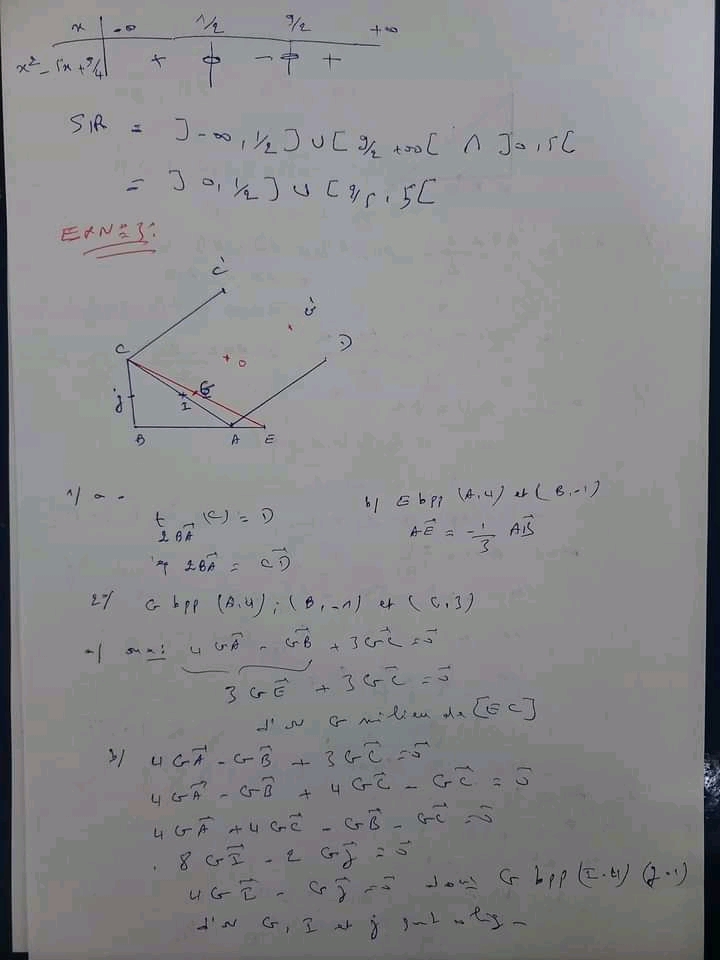 x | -∞ 1/2 9/2 +∞
x² - 5x + 9/4 | + 0 - 0 +
SIR = ]-∞, 1/2] ∪ [9/2 +∞[ ∩ ]0, 5[
= ]0, 1/2] ∪ [9/5, 5[
EXN°3:
C'
C
D
O
G
I
j
B
A
E
1/ a -
t 2BA→ (C) = D
2BA→ = CD→
b/ E bpp (A,4) et (B,-1)
AE→ = -1/3 AB→
2/ G bpp (A,4); (B,-1) et (C,3)
a/ on a: 4GA→ - GB→ + 3GC→ = 0→
3GE→ + 3GC→ = 0→
d'où G milieu de [EC]
4GA→ - GB→ + 3GC→ = 0→
4GA→ - GB→ + 4GC→ - GC→ = 0→
4GA→ + 4GC→ - GB→ - GC→ = 0→
8GI→ - 2Gj→ = 0→
4GI→ - Gj→ = 0→ donc G bpp (I,4) (j-1)
d'où G, I et j sont alig -